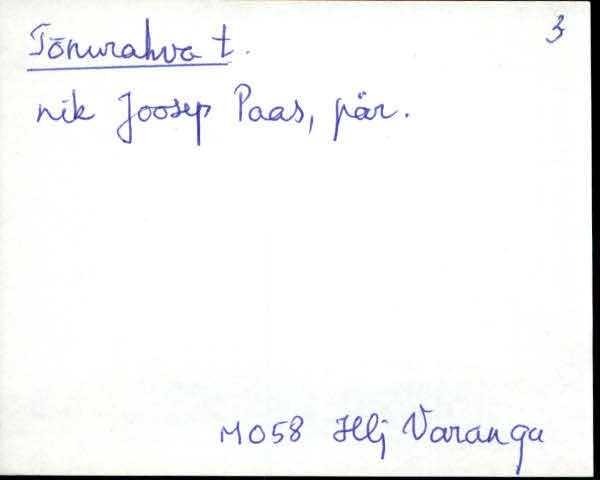 3
Tõnurahva t.
nik Joosep Paas, pär.
M058 Hlj Varangu